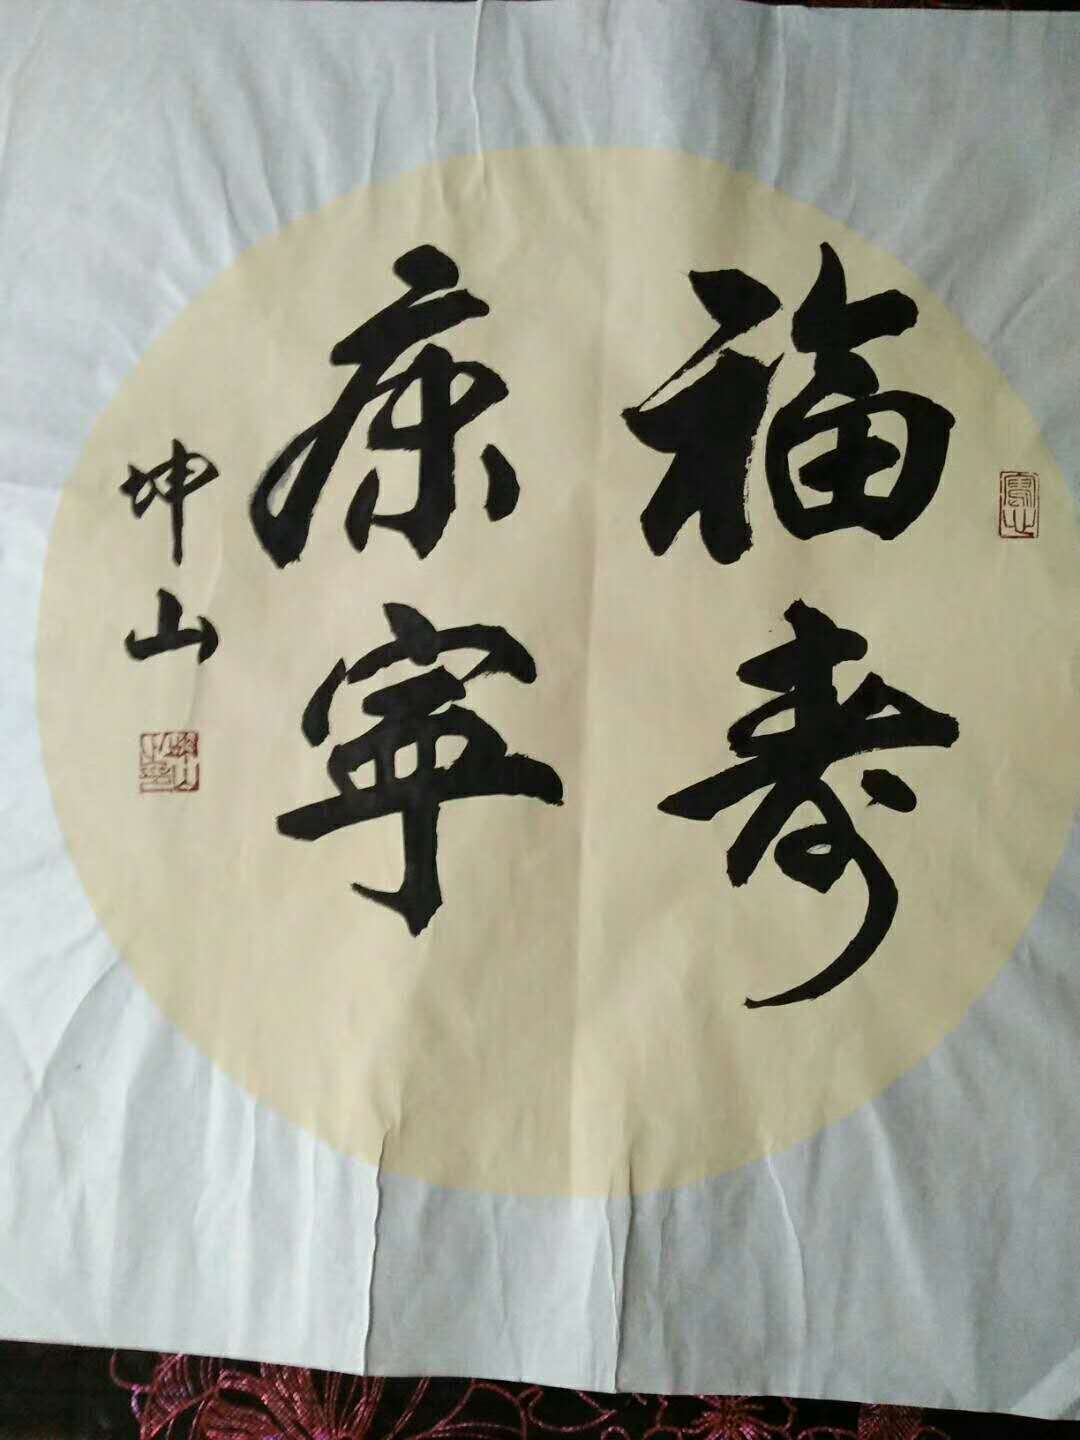 福寿
康宁
坤山